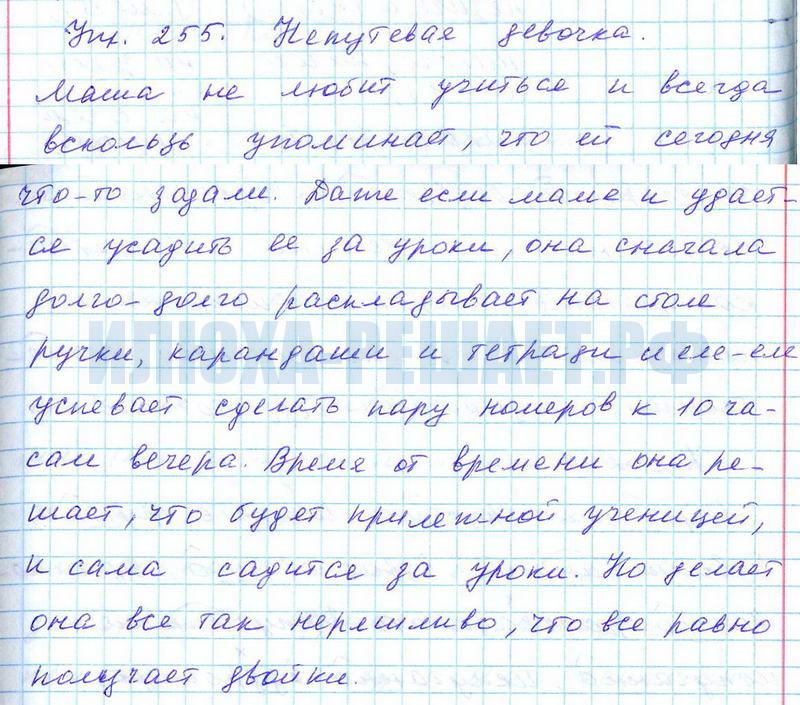 Упр. 255. Непутевая девочка.
Маша не любит учиться и всегда
вскользь упоминает, что ей сегодня
что-то задали. Даже если маме и удает-
ся усадить ее за уроки, она сначала
долго-долго раскладывает на столе
ручки, карандаши и тетради и еле-еле
ИЛЮХА-РЕШАЕТ.РФ
успевает сделать пару номеров к 10 ча-
сам вечера. Время от времени она ре-
шает, что будет прилежной ученицей,
и сама садится за уроки. Но делает
она все так неряшливо, что все равно
получает двойки.